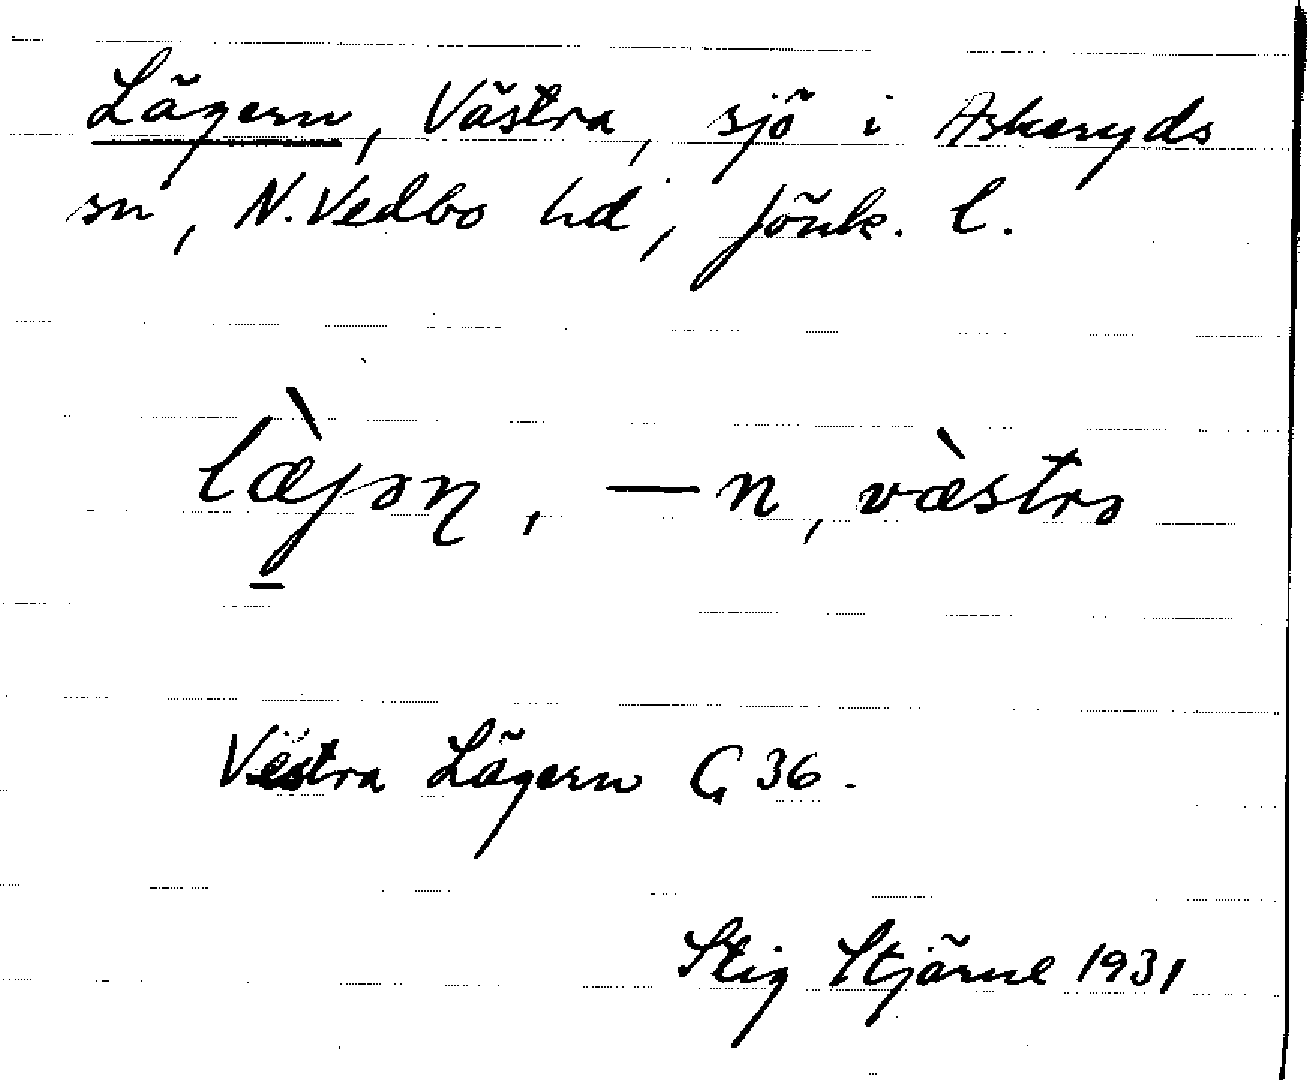 Lägern, Västra, sjö i Askeryds
sn, N. Vedbo hd, Jönk. l.
læ̀jən, – n, væ̀strə
Västra Lägern G 36.
Stig Stjärne 1931